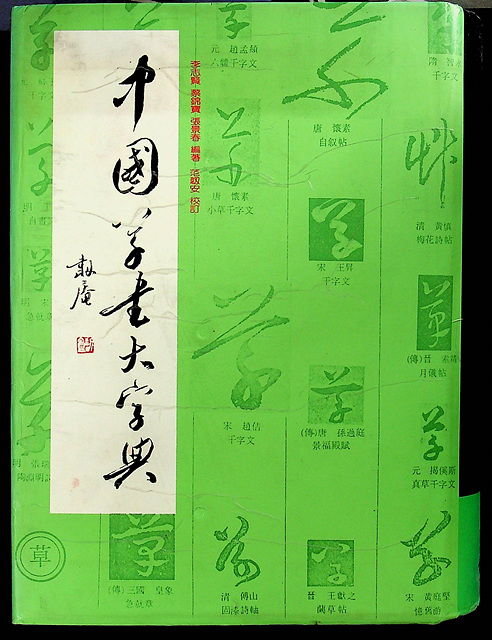 中國草書大字典
李志賢 蔡錦寶 張景春 編著 范韌安 校訂
元 趙孟頫
六體千字文
隋 智永
千字文
唐 懷素
自叙帖
唐 懷素
小草千字文
清 黃慎
梅花詩帖
宋 王昇
千字文
(傳)晉 索靖
月儀帖
宋 趙佶
千字文
(傳)唐 孫過庭
景福殿賦
元 揭傒斯
真草千字文
草
(傳)三國 皇象
急就章
清 傅山
晉 王獻之
蘭草帖
宋 黃庭堅
憶舊游